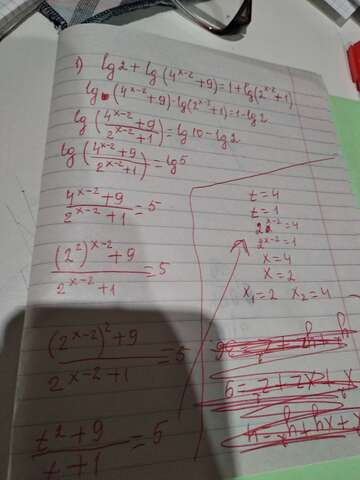 1) lg2 + lg(4^(x-2)+9) = 1 + lg(2^(x-2)+1)
lg (4^(x-2)+9) - lg(2^(x-2)+1) = 1 - lg2
lg((4^(x-2)+9)/(2^(x-2)+1)) = lg10 - lg2
lg((4^(x-2)+9)/(2^(x-2)+1)) = lg5
(4^(x-2)+9)/(2^(x-2)+1) = 5
((2^2)^(x-2)+9)/(2^(x-2)+1) = 5
((2^(x-2))^2+9)/(2^(x-2)+1) = 5
(t^2+9)/(t+1) = 5
t = 4
t = 1
2^(x-2) = 4
2^(x-2) = 1
x = 4
x = 2
x₁ = 2 x₂ = 4